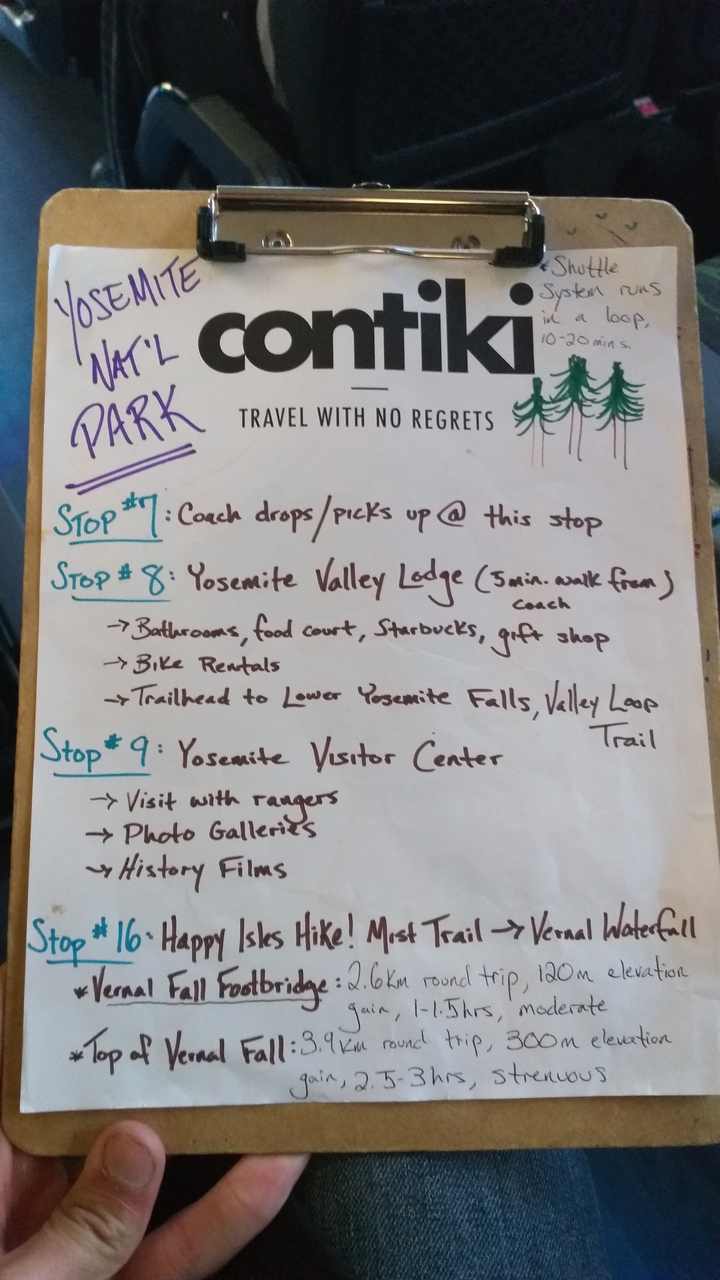 YOSEMITE
NAT'L
PARK
contiki
TRAVEL WITH NO REGRETS
*Shuttle
System runs
in a loop,
10-20mins.
Stop #7: Coach drops/picks up @ this stop
Stop #8: Yosemite Valley Lodge (5min. walk from)
coach
→Bathrooms, food court, Starbucks, gift shop
→Bike Rentals
→Trailhead to Lower Yosemite Falls, Valley Loop
Trail
Stop #9: Yosemite Visitor Center
→ Visit with rangers
→ Photo Galleries
→ History Films
Stop #16: Happy Isles Hike! Mist Trail → Vernal Waterfall
*Vernal Fall Footbridge: 2.6km round trip, 120m elevation
gain, 1-1.5hrs, moderate
*Top of Vernal Fall: 3.9km round trip, 300m elevation
gain, 2.5-3hrs, strenuous